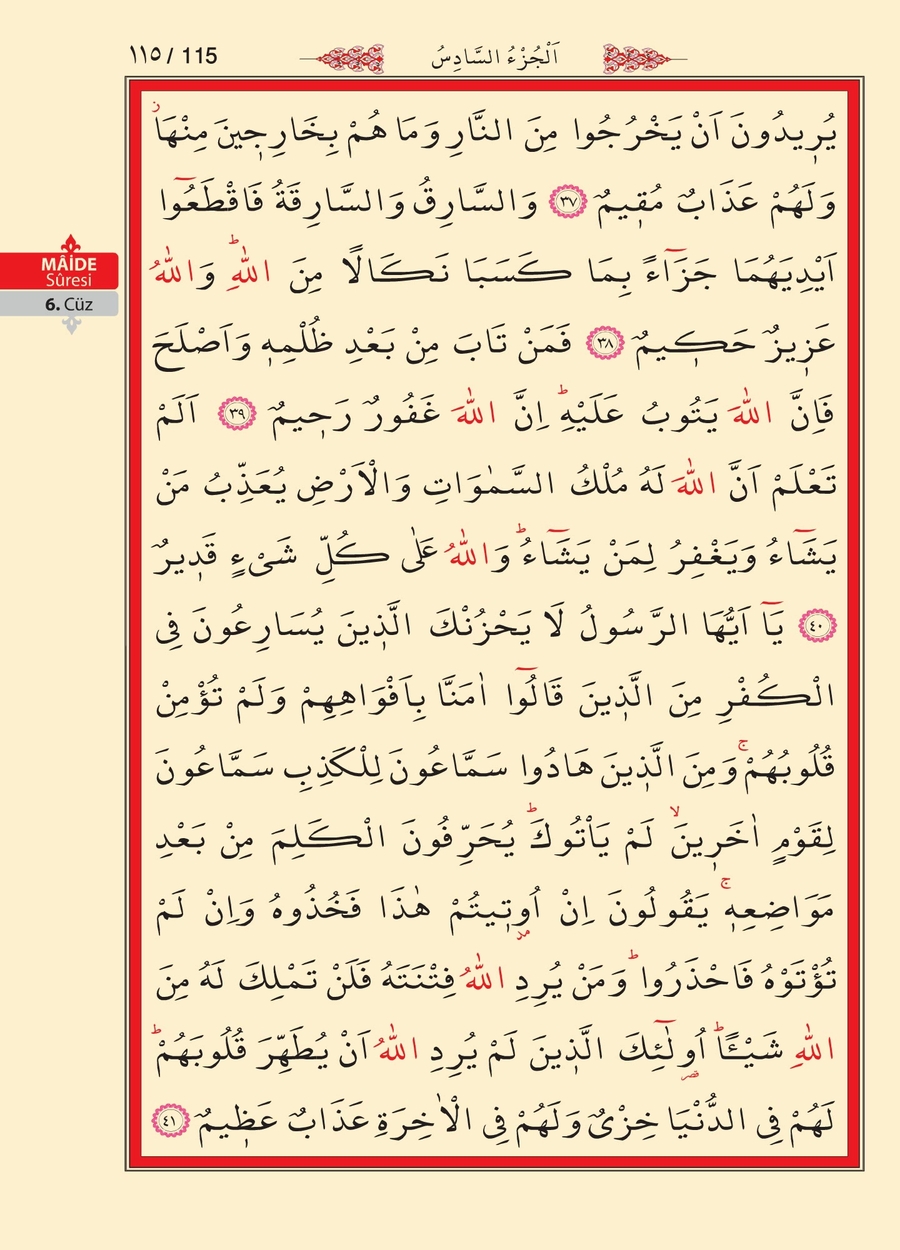 ١١٥ / 115
اَلْجُزْءُ السَّادِسُ
يُر۪يدُونَ اَنْ يَخْرُجُوا مِنَ النَّارِ وَمَا هُمْ بِخَارِج۪ينَ مِنْهَاۘ
وَلَهُمْ عَذَابٌ مُق۪يمٌ ﴿٣٧﴾ وَالسَّارِقُ وَالسَّارِقَةُ فَاقْطَعُٓوا
اَيْدِيَهُمَا جَزَٓاءً بِمَا كَسَبَا نَكَالًا مِنَ اللّٰهِؕ وَاللّٰهُ
عَز۪يزٌ حَك۪يمٌ ﴿٣٨﴾ فَمَنْ تَابَ مِنْ بَعْدِ ظُلْمِه۪ وَاَصْلَحَ
فَاِنَّ اللّٰهَ يَتُوبُ عَلَيْهِؕ اِنَّ اللّٰهَ غَفُورٌ رَح۪يمٌ ﴿٣٩﴾ اَلَمْ
تَعْلَمْ اَنَّ اللّٰهَ لَهُ مُلْكُ السَّمٰوَاتِ وَالْاَرْضِ يُعَذِّبُ مَنْ
يَشَٓاءُ وَيَغْفِرُ لِمَنْ يَشَٓاءُؕ وَاللّٰهُ عَلٰى كُلِّ شَىْءٍ قَد۪يرٌ
﴿٤٠﴾ يَٓا اَيُّهَا الرَّسُولُ لَا يَحْزُنْكَ الَّذ۪ينَ يُسَارِعُونَ فِى
الْكُفْرِ مِنَ الَّذ۪ينَ قَالُٓوا اٰمَنَّا بِاَفْوَاهِهِمْ وَلَمْ تُؤْمِنْ
قُلُوبُهُمْۚ وَمِنَ الَّذ۪ينَ هَادُوا سَمَّاعُونَ لِلْكَذِبِ سَمَّاعُونَ
لِقَوْمٍ اٰخَر۪ينَۙ لَمْ يَاْتُوكَؕ يُحَرِّفُونَ الْكَلِمَ مِنْ بَعْدِ
مَوَاضِعِه۪ۚ يَقُولُونَ اِنْ اُو۫ت۪يتُمْ هٰذَا فَخُذُوهُ وَاِنْ لَمْ
تُؤْتَوْهُ فَاحْذَرُواؕ وَمَنْ يُرِدِ اللّٰهُ فِتْنَتَهُ فَلَنْ تَمْلِكَ لَهُ مِنَ
اللّٰهِ شَيْـًٔاؕ اُو۬لٰٓئِكَ الَّذ۪ينَ لَمْ يُرِدِ اللّٰهُ اَنْ يُطَهِّرَ قُلُوبَهُمْؕ
لَهُمْ فِى الدُّنْيَا خِزْىٌ وَلَهُمْ فِى الْاٰخِرَةِ عَذَابٌ عَظ۪يمٌ ﴿٤١﴾
MÂİDE
Sûresi
6. Cüz